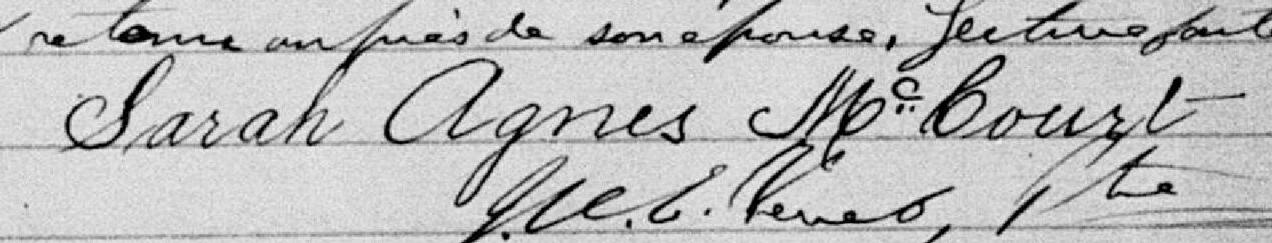 retenu auprès de son épouse. Lecture faite
Sarah Agnes McCourt
Ptre